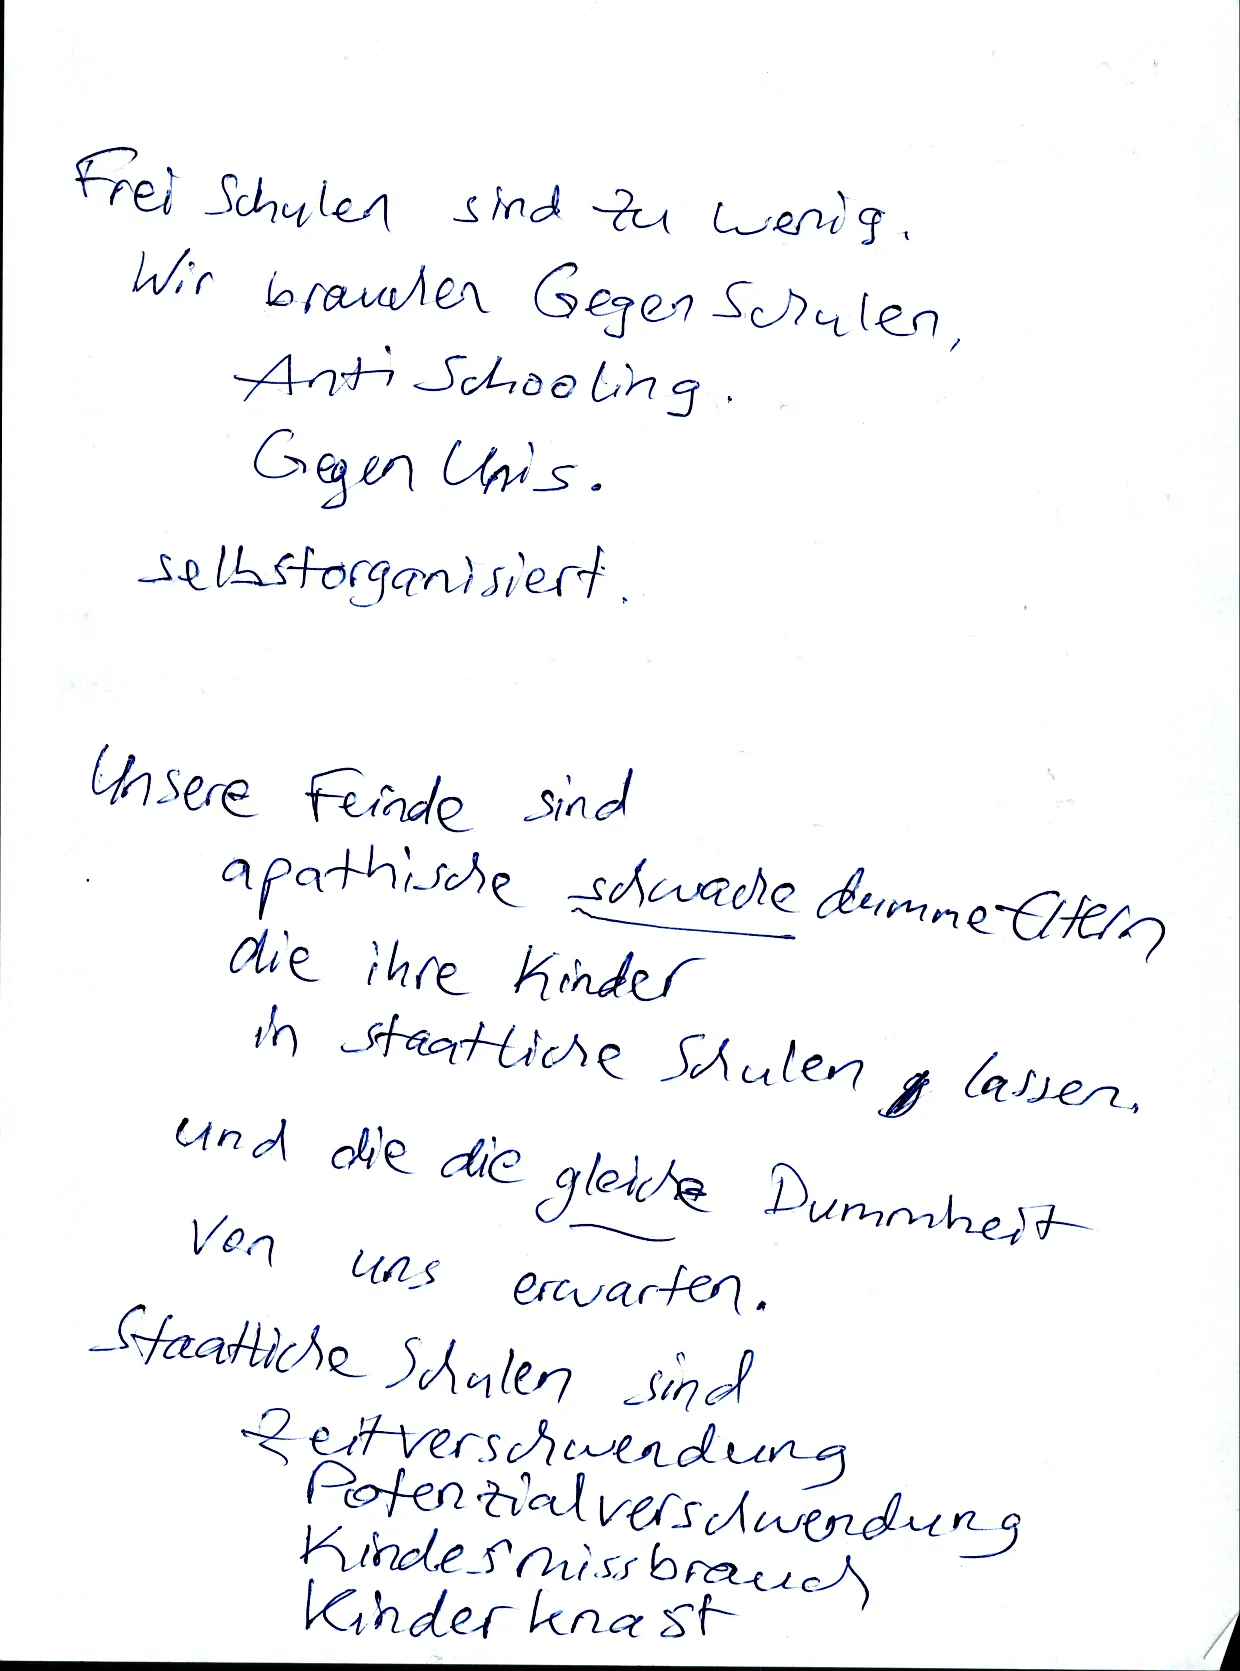 Frei Schulen sind zu wenig.
Wir brauchen GegenSchulen,
Anti Schooling.
Gegen Unis.
selbstorganisiert.
Unsere Feinde sind
apathische schwache dumme Eltern
die ihre Kinder
in staatliche Schulen lassen.
und die die gleiche Dummheit
von uns erwarten.
Staatliche Schulen sind
Zeitverschwendung
Potenzialverschwendung
Kindesmissbrauch
Kinderknast